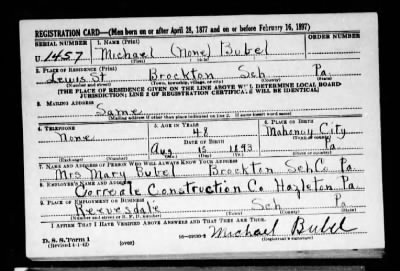 REGISTRATION CARD—(Men born on or after April 28, 1877 and on or before February 16, 1897)
SERIAL NUMBER 1. NAME (Print)
U. 1457 Michael (None) Bubel
(First) (Middle) (Last)
2. PLACE OF RESIDENCE (Print)
Lewis St. Brockton Sch Pa.
(Number and street) (Town, township, village, or city) (County) (State)
[THE PLACE OF RESIDENCE GIVEN ON THE LINE ABOVE WILL DETERMINE LOCAL BOARD
JURISDICTION; LINE 2 OF REGISTRATION CERTIFICATE WILL BE IDENTICAL]
3. MAILING ADDRESS
Same
[Mailing address if other than place indicated on line 2. If same insert word same]
4. TELEPHONE 5. AGE IN YEARS 6. PLACE OF BIRTH
None 48 Mahanoy City
DATE OF BIRTH (Town or county)
Aug 15 1893 Pa.
(Exchange) (Number) (Mo.) (Day) (Yr.) (State or country)
7. NAME AND ADDRESS OF PERSON WHO WILL ALWAYS KNOW YOUR ADDRESS
Mrs Mary Bubel Brockton Sch Co Pa.
8. EMPLOYER'S NAME AND ADDRESS
Correale Construction Co Hazleton Pa.
9. PLACE OF EMPLOYMENT OR BUSINESS
Reevesdale Sch Pa
(Number and street or R. F. D. number) (Town) (County) (State)
I AFFIRM THAT I HAVE VERIFIED ABOVE ANSWERS AND THAT THEY ARE TRUE.
D. S. S. Form 1 Michael Bubel
(Revised 4-1-42) (over) (Registrant's signature)